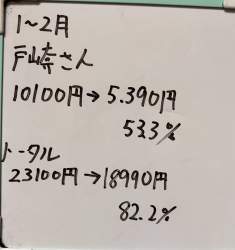 1～2月
戸崎さん
10100円→5.390円
53.3%
トータル
23100円→18990円
82.2%